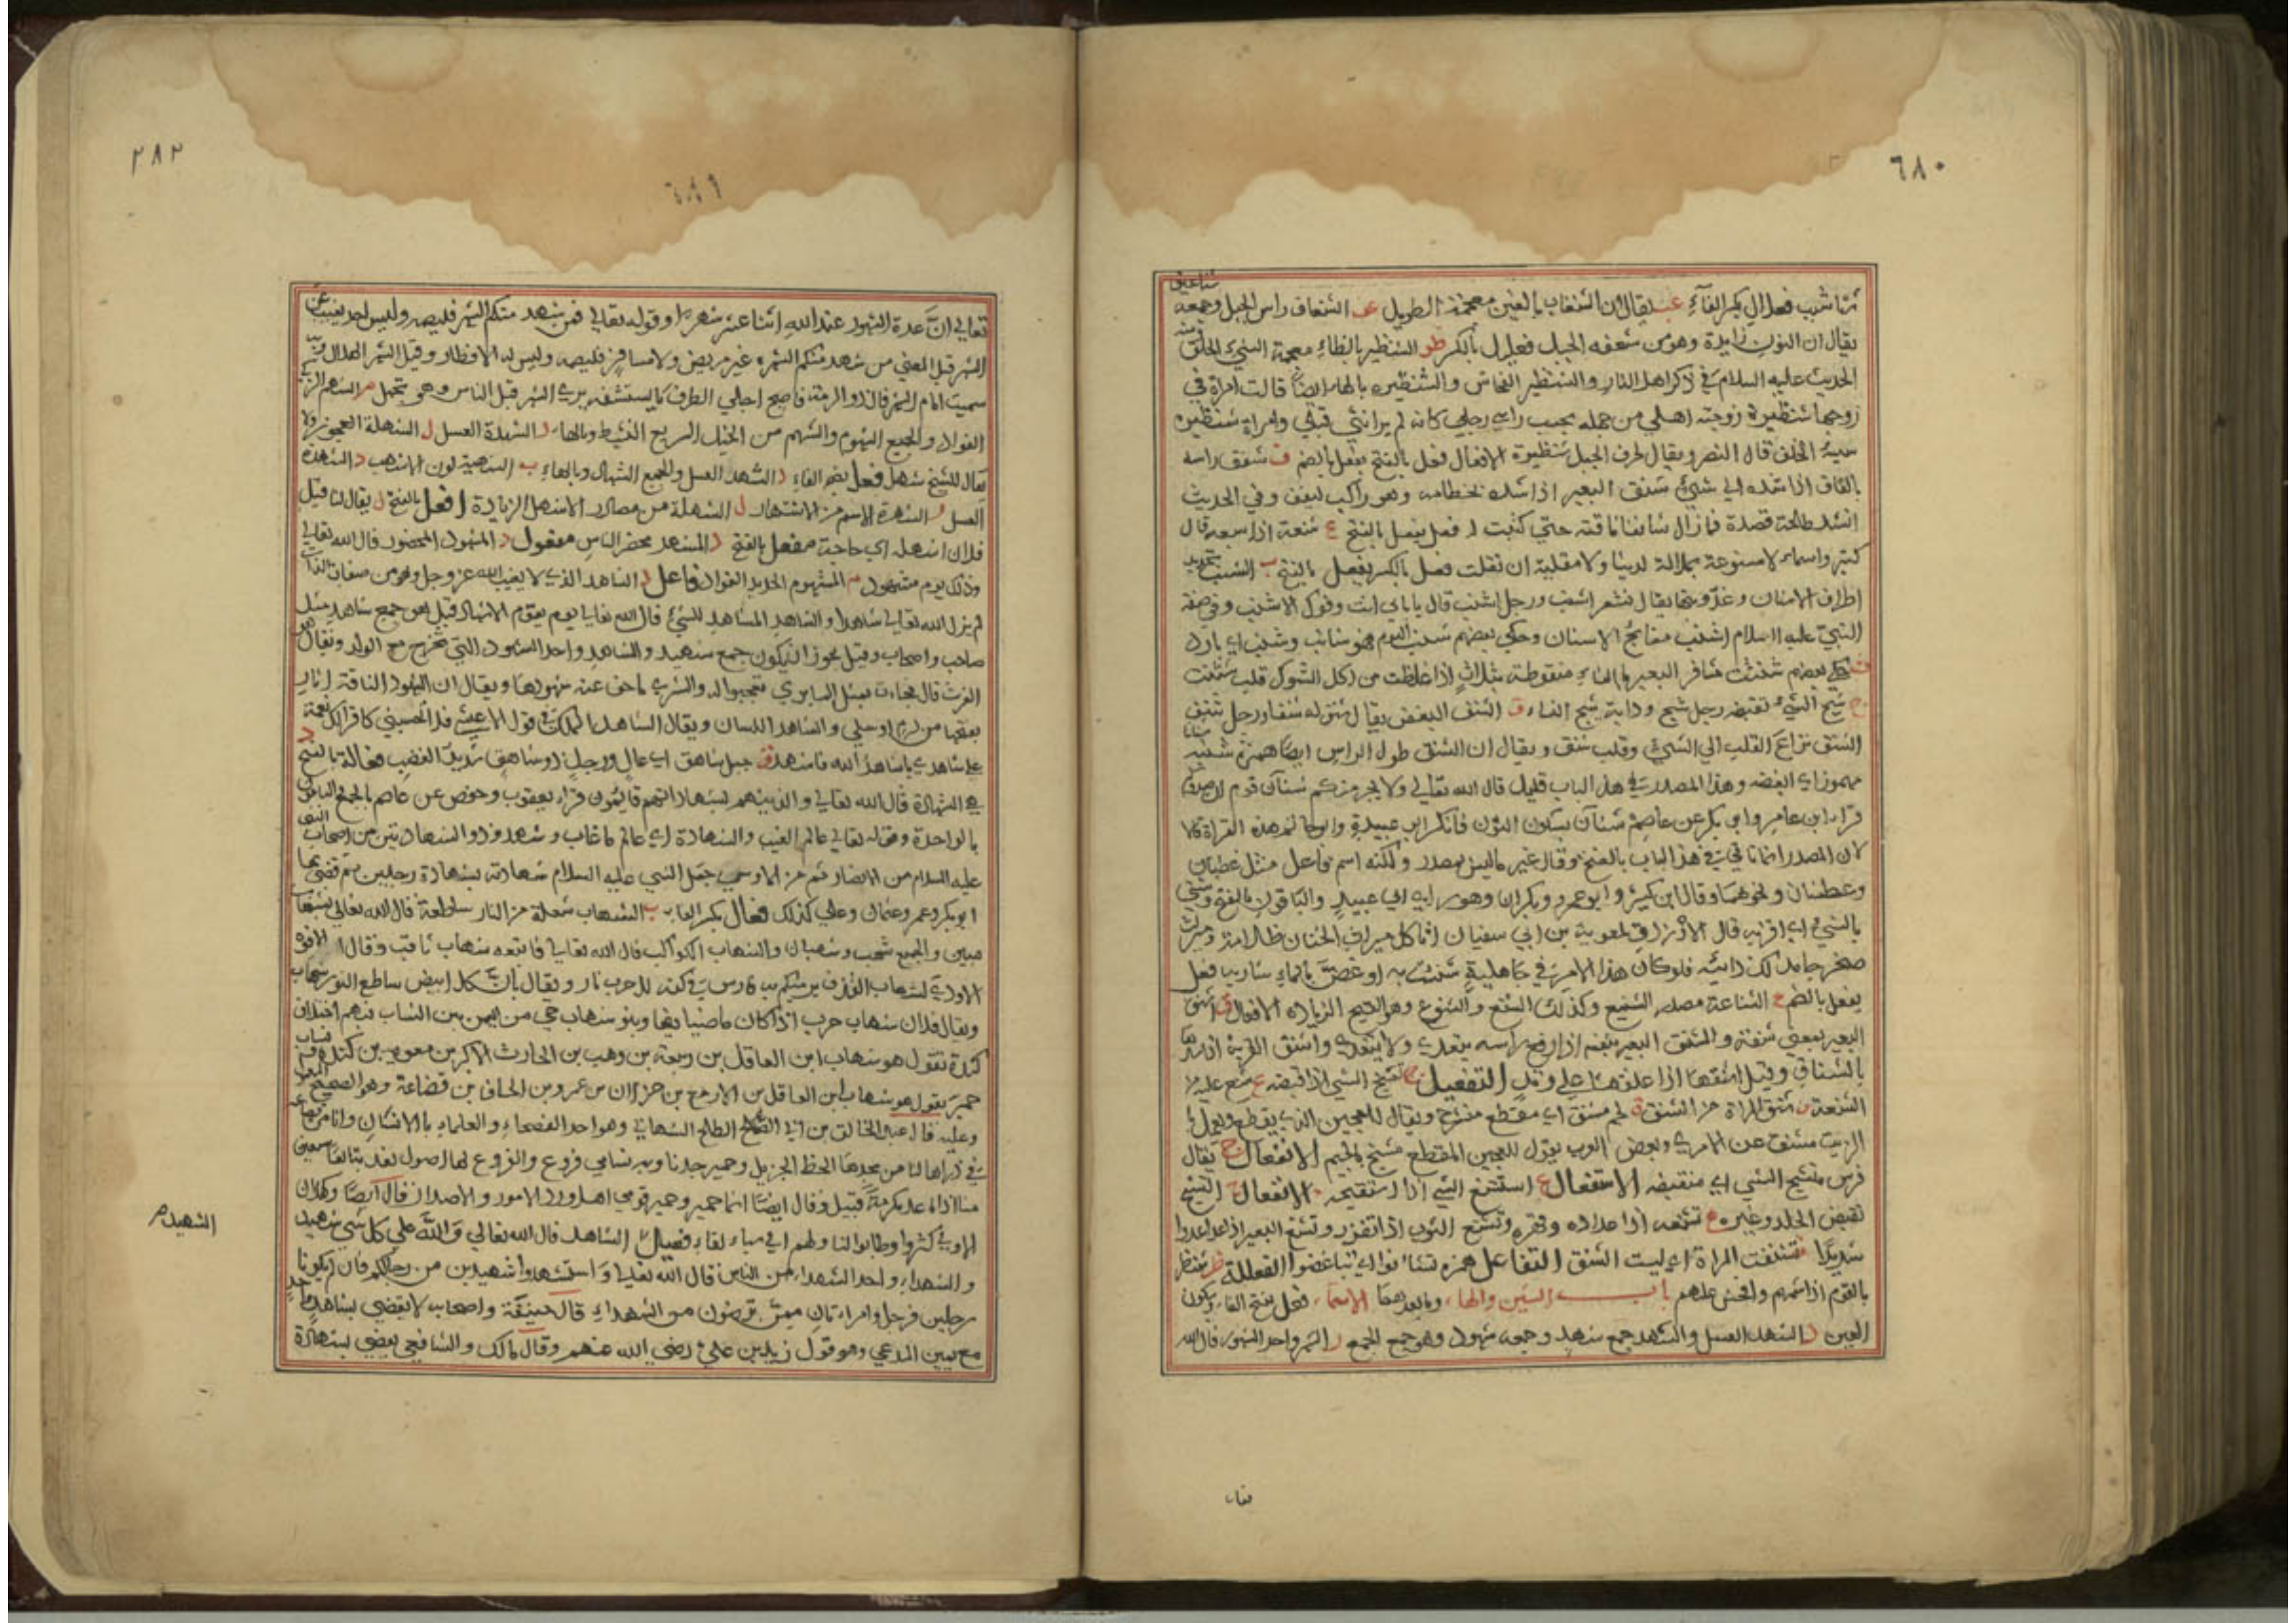 ٦٨٠
شناعيف
شب فعلال بكسر الفاء يقال ان الشنغاب بالغين معجمة الطويل الشنعاف راس الجبل وجمعه
يقال ان النون زايدة وهو من شعفه الجبل فعليل بالكسر ظر الشنظير بالظاء معجمة السيئ الخلق
الحديث عليه السلام في ذكر اهل النار والشنظير الفحاش والشنظيره بالهاء ايضا قالت امراة في
زوجها شنظيرة زوجنيه اهلي من جهله يحسب راسي رجلي كانه لم ير انثى قبلي وامراة شنظيره
سيئة الخلق قال النضر ويقال لحرف الجبل شنظيرة الافعال فعل بالفتح يفعل بالضم ق شنق راسه
بالقاف اذا شده الى شيئ شنق البعير اذا شده بخطامه وهو راكب ليقف وفي الحديث
انشد طلحة قصدة فما زال شانقا ناقته حتى كتبت له فعل يفعل بالفتح ع شنعه اذا سبعه قال
كثير واسماء لا مشنوعة بملالة لدينا ولا مقلية ان تقلت فعل بالكسر يفعل بالفتح ب الشنب تحديد
اطراف الاسنان وعذوبتها يقال ثغر اشنب ورجل اشنب قال يا بابي انت وفوك الاشنب وفي صفة
النبي عليه السلام اشنب مفلج الاسنان وحكى بعضهم شنب اليوم فهو شانب وشنب اي بارد
بعضهم شنثت مشافر البعير بالثاء منقوطة بثلاث اذا غلظت من اكل الشوك قلب شثنت
ج شنج الشيئ تقبضه رجل شنج ودابة شنج النساء ف الشنف البغض يقال شنف له شنفا ورجل شنف
الشنق نزاع القلب الى الشيئ وقلب شنق ويقال ان الشنق طول الراس ايضا همزة شنئه
مهموز اي ابغضه وهذا المصدر في هذا الباب قليل قال الله تعالى ولا يجرمنكم شنآن قوم
قراء ابن عامر وابو بكر عن عاصم شنآن بسكون النون فانكر ابو عبيدة وابو حاتم هذه القراءة قالا
لان المصدر انما ياتي في هذا الباب بالفتح وقال غيرهما ليس بمصدر ولكنه اسم فاعل مثل غضبان
وعطشان ونحوهما وقال ابن كثير وابو عمرو وهو راي ابي عبيد والباقون بالفتح وشنئ
بالشيئ اي اقر به قال الفرزدق لمعوية بن ابي سفيان
صخر جامد لك ذائبه فلو كان هذا الامر في جاهلية شنئت به او غص بالماء شاربه فعل
يفعل بالضم ع الشناعة مصدر الشنيع وكذلك الشنع والشنوع وهو القبيح الزياده الافعال ق اشنق
البعير بمعنى شنقة واشنق البعير بنفسه اذا رفع راسه يتعدى ولا يتعدى واشنق القربة اذا شدها
بالشناق وقيل اشنقها اذا علقها على وتد التفعيل ج شنج الشيئ اذا قبضه ع شنع عليه
الشنعة شنق المراة من الشنف ق لحم مشنق اي مقطع مشرح ويقال للعجين الذي يقطع ويعمل
الزيت مشنق عن الاموي وبعض العرب يقول للعجين المقطع مشنج بالجيم الانفعال ج يقال
فرس منشنج الشيئ اي منقبضه الاستفعال ع استشنع الشيئ اذا استقبحه الانفعال ج التشنج
تقبض الجلد وغيره ع تشنعه اذا عداه وتشنع الثوب اذا تفزر وتشنع البعير اذا عدا عدوا
شديدا ف تشنفت المراة اي لبست الشنف التفاعل همزه تشانوا اي تباغضوا الفعللة ظر شنظر
بالقوم اذا شتمهم وافحش عليهم باب الشين والهاء وما بعدهما الاسماء فعل بفتح الفاء وسكون
العين د الشهد العسل والشهد جمع شاهد وجمعه شهود وهو جمع الجمع ر الشهر واحد الشهور قال الله
تعا
٢٨٢
٦٨١
تعالى ان عدة الشهور عند الله اثنا عشر شهرا وقوله تعالى فمن شهد منكم الشهر فليصمه وليس احد يغيب عن
الشهر قيل المعنى من شهد منكم الشهر غير مريض ولا مسافر فليصمه وليس له الافطار وقيل الشهر الهلال
سميت ايام الشهر قال ذو الرمة فاصبح اجلى الطرف ما يستشفه يرى الشهر قبل الناس وهو نحيل م الشهم
الفواد والجمع الشهوم والشهم من الخيل السريع النشيط وبالهاء د الشهدة العسل ل الشهلة العجوز ولا
يقال للشيخ شهل فعل بضم الفاء د الشهد العسل والجمع الشهاد وبالهاء ب الشهبة لون الاشهب د الشهدة
العسل ر الشهرة الاسم من الاشتهار ل الشهلة من مصادر الاشهل الزيادة افعل بالفتح ل يقال لنا قبل
فلان اشهله اي حاجة مفعل بالفتح د المشهد محضر الناس مفعول د المشهود المحضور قال الله تعالى
وذلك يوم مشهود م المشهوم الحديد الفواد فاعل د الشاهد الذي لا يغيب الله عز وجل وهو من صفات الذات
لم يزل الله تعالى شاهدا والشاهد المشاهد للشيئ قال الله تعالى يوم يقوم الاشهاد قيل هو جمع شاهد مثل
صاحب واصحاب وقيل يجوز ان يكون جمع شهيد والشاهد واحد الشهود التي تخرج مع الولد ويقال هو
الغرس قال فجاءت بمثل السابري تعجبوا له والثرى ما جف عنه شهودها ويقال ان الشهود الناقة اثار
بعقبها من دم او سلى والشاهد اللسان ويقال الشاهد الملك في قول الاعشى فلا تحسبني كافرا لك نعمة
على شاهدي يا شاهد الله فاشهد ق جبل شاهق اي عال ورجل ذو شاهق شديد الغضب فعالة بالفتح د
هي الشهادة قال الله تعالى والذين هم بشهاداتهم قايمون قراء يعقوب وحفص عن عاصم بالجمع الباقون
بالواحدة وقوله تعالى عالم الغيب والشهادة اي عالم ما غاب وشهد وذو الشهادتين من اصحاب النبي
عليه السلام من الانصار ثم من الاوس جعل النبي عليه السلام شهادته بشهادة رجلين ثم قضى بها
ابو بكر وعمر وعثمان وعلي كذلك فعال بكسر الفاء ب الشهاب شعلة من النار ساطعة قال الله تعالى بشهاب
مبين والجمع شهب وشهبان والشهاب الكوكب قال الله تعالى فاتبعه شهاب ثاقب وقال الافوه
الاودي كشهاب القذف يرميكم به فارس في كفه للحرب نار ويقال بان كل ابيض ساطع النور شهاب
ويقال فلان شهاب حرب اذا كان ماضيا فيها وبنو شهاب حي من اليمن بين النساب فيهم اختلاف
كندة تقول هو شهاب ابن العاقل بن ربيعة بن وهب بن الحارث الاكبر بن معوية بن كندة ونساب
حمير يقول هو شهاب ابن العاقل بن الازمع بن خولان بن عمرو بن الحاف بن قضاعة وهو الصحيح
وعليه قال عبد الخالق بن ابي الطلح الشهابي وهو احد الفصحاء والعلماء بالانساب وانا من
في ذراها لنا من مجدها الحظ الجزيل وحمير جدنا وبه نسامي فروع والفروع لها اصول
منا اذا ما عد مكرمة قبيل وقال ايضا انما حمير وحمير قومي اهل ورد الامور والاصدار قال ايضا وكهلان
الاولى كثروا وطابوا لنا ولهم فعيل د الشاهد قال الله تعالى والله على كل شئ شهيد
الشهيد م
والشهداء واحد الشهداء من الناس قال الله تعالى واستشهدوا شهيدين من رجالكم فان لم يكونا
رجلين فرجل وامراءتان ممن ترضون من الشهداء قال حنيفة واصحابه لا يقضى بشاهد واحد
مع يمين المدعي وهو قول زيد بن علي رضي الله عنهم وقال مالك والشافعي يقضى بشهادة